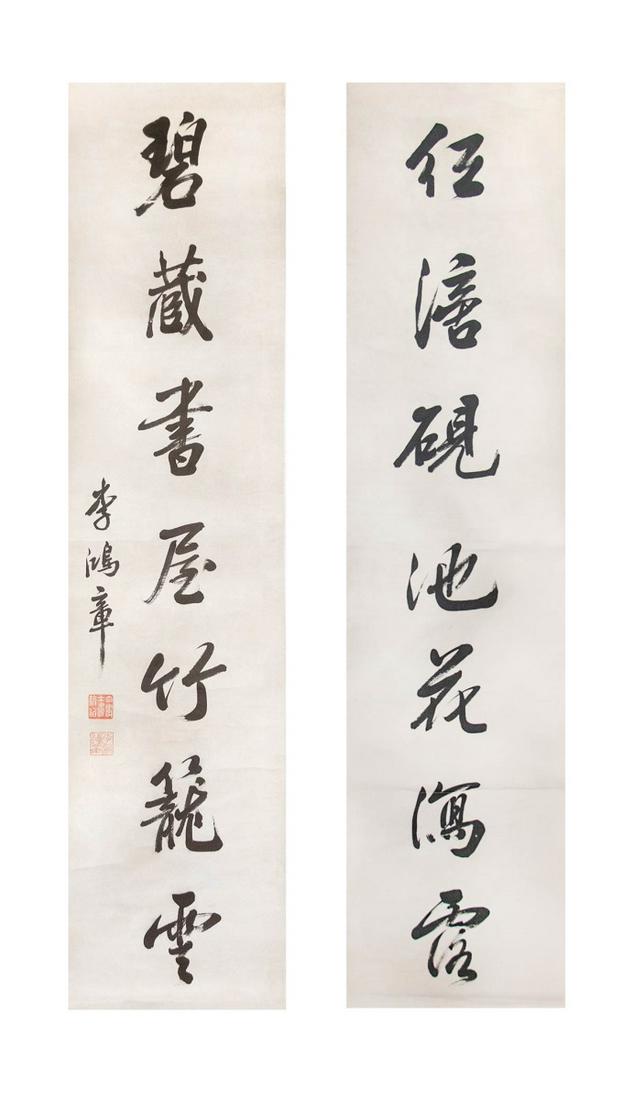 紅硯池花瀉露
碧藏書屋竹籠雲
李鴻章